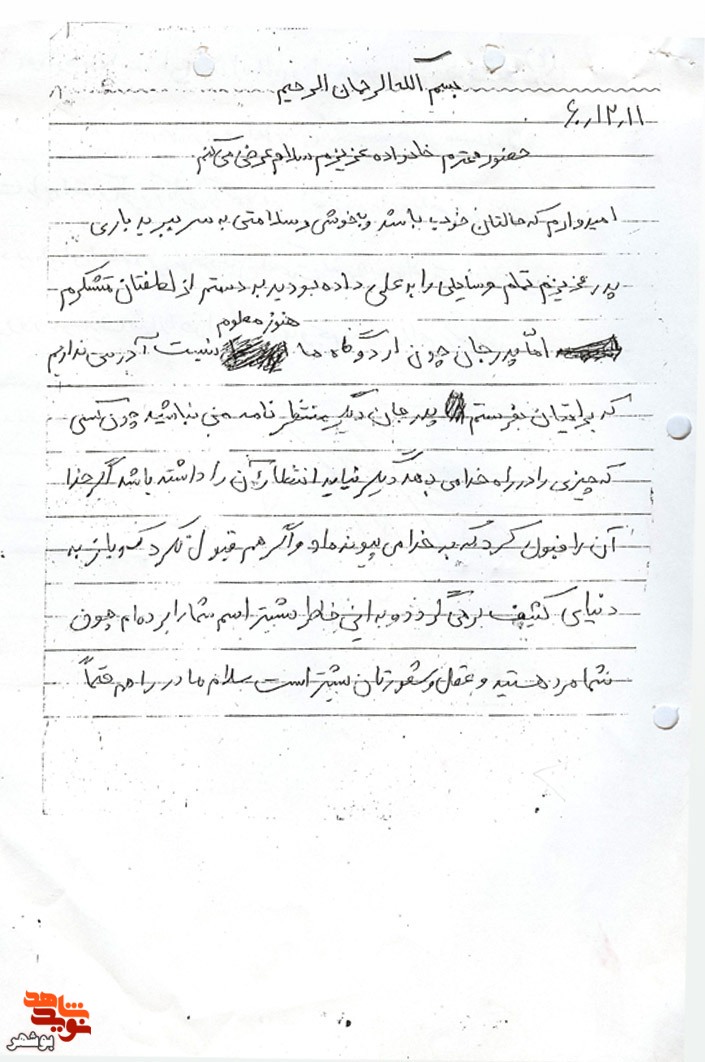 بسم الله الرحمان الرحیم
۶۰٫۱۲٫۱۱
حضور محترم خانواده عزیزم سلام عرض می کنم
امیدوارم که حالتان خوب باشد و بخوشی و سلامتی به سر ببرید باری
پدر عزیزم تمام وسایلی را به علی داده بودید به دستم از لطفتان متشکرم
هنوز معلوم
امّا پدر جان چون اردوگاه ما نیست آدرسی نداریم
که برایتان بفرستم پدر جان دیگر منتظر نامه من نباشید چون کسی
که چیزی را در راه خدا می دهد دیگر نباید انتظار آن را داشته باشد اگر خدا
آن را قبول کرد که به خدا می پیوندد و اگر هم قبول نکرد که باز به
دنیای کثیف برمی گردد و به این خاطر بیشتر اسم شما را برده ام چون
شما مرد هستید و عقل و شعورتان بیشتر است سلام مادر را هم حتماً
نوید شاهد
بوشهر